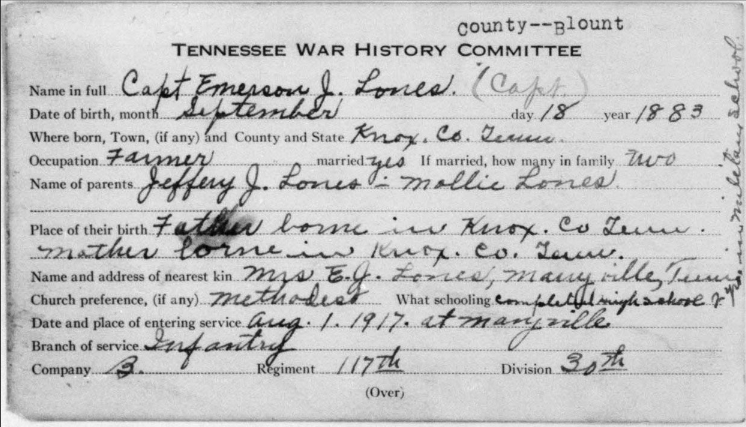 County--Blount
TENNESSEE WAR HISTORY COMMITTEE
Name in full Capt Emerson J. Lones. (Capt.)
Date of birth, month September day 18 year 1883
Where born, Town, (if any) and County and State Knox. Co. Tenn.
Occupation Farmer married yes If married, how many in family two
Name of parents Jeffery J. Lones - Mollie Lones.
Place of their birth Father borne in Knox. Co Tenn.
Mother borne in Knox. Co. Tenn.
Name and address of nearest kin Mrs E. J. Lones, Maryville, Tenn
Church preference, (if any) Methodest What schooling completed high school 2
yrs. in miletary school.
Date and place of entering service Aug. 1. 1917. at Maryville
Branch of service Infantry
Company B. Regiment 117th Division 30th
(Over)